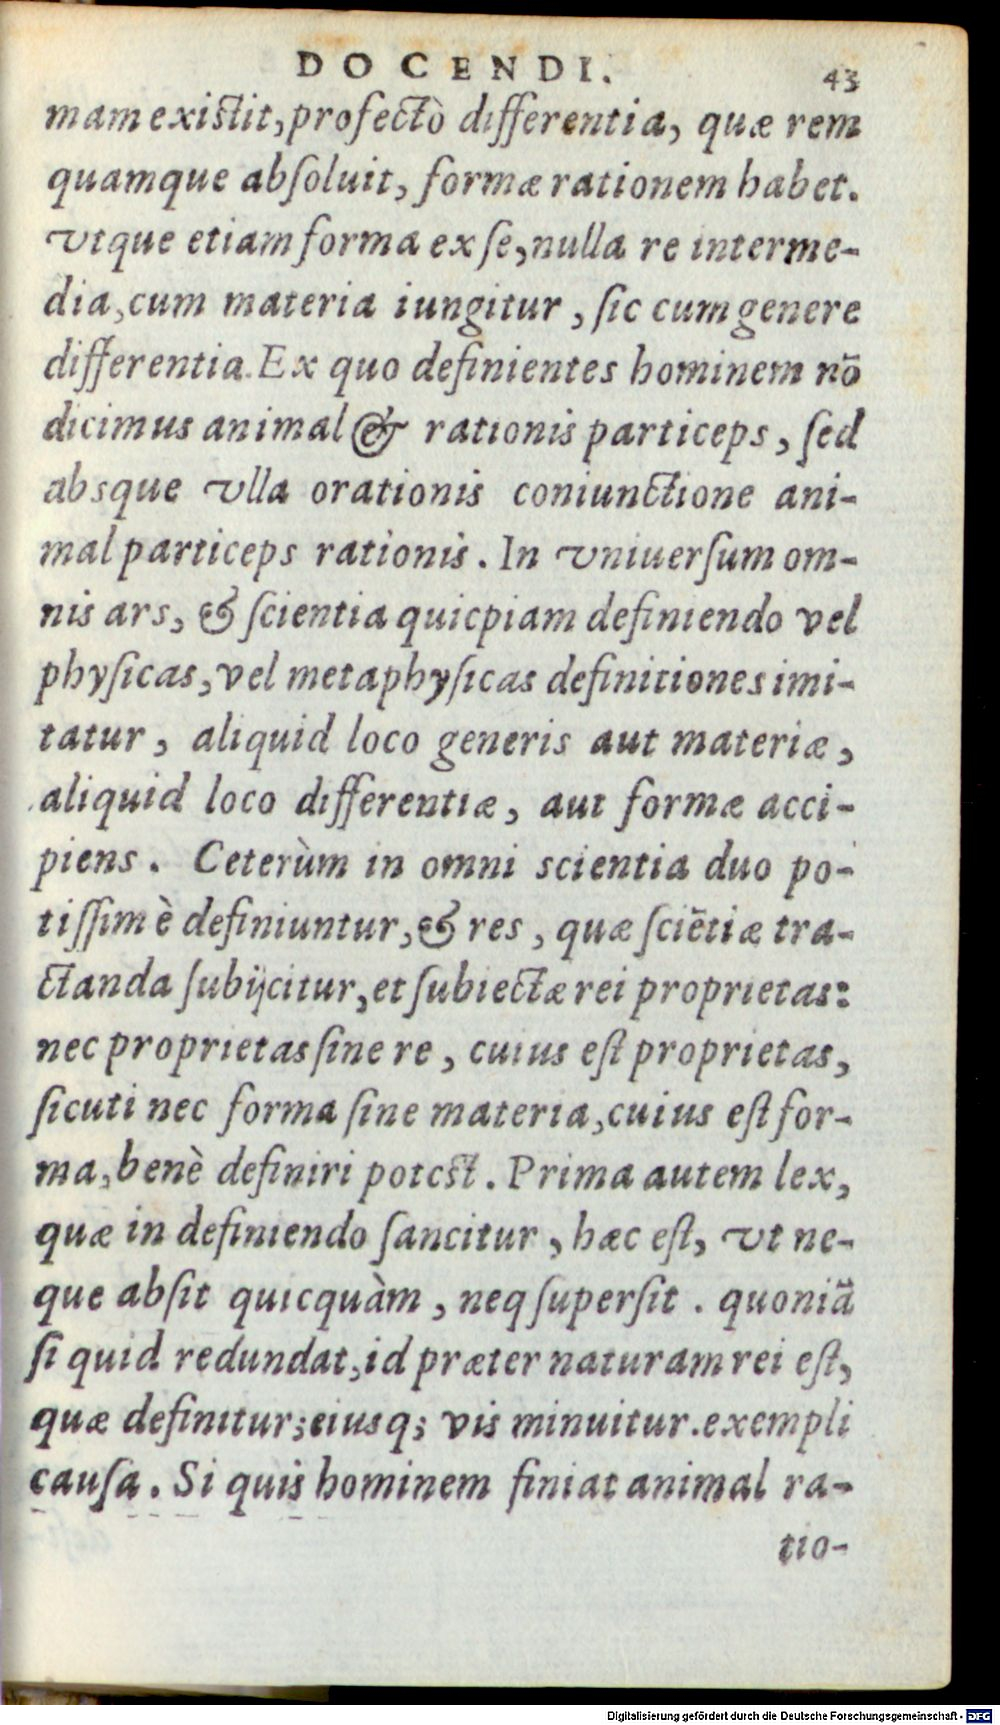 DOCENDI. 43
mam existit, profectò differentia, quæ rem
quamque abſoluit, formæ rationem habet.
Vtque etiam forma ex ſe, nulla re interme-
dia, cum materia iungitur, ſic cum genere
differentia. Ex quo definientes hominem nō
dicimus animal & rationis particeps, ſed
absque vlla orationis coniunctione ani-
mal particeps rationis. In vniuerſum om-
nis ars, & ſcientia quicpiam definiendo vel
phyſicas, vel metaphyſicas definitiones imi-
tatur, aliquid loco generis aut materiæ,
aliquid loco differentiæ, aut formæ acci-
piens. Ceterùm in omni scientia duo po-
tiſſimè definiuntur, & res, quæ ſciētiæ tra-
ctanda ſubijcitur, et ſubiectæ rei proprietas:
nec proprietas ſine re, cuius eſt proprietas,
ſicuti nec forma ſine materia, cuius eſt for-
ma, benè definiri potest. Prima autem lex,
quæ in definiendo ſancitur, hæc eſt, vt ne-
que abſit quicquàm, neq ſuperſit. quoniã
ſi quid redundat, id præter naturam rei eſt,
quæ definitur; eiusq; vis minuitur. exempli
cauſa. Si quis hominem finiat animal ra-
tio-
Digitalisierung gefördert durch die Deutsche Forschungsgemeinschaft - DFG